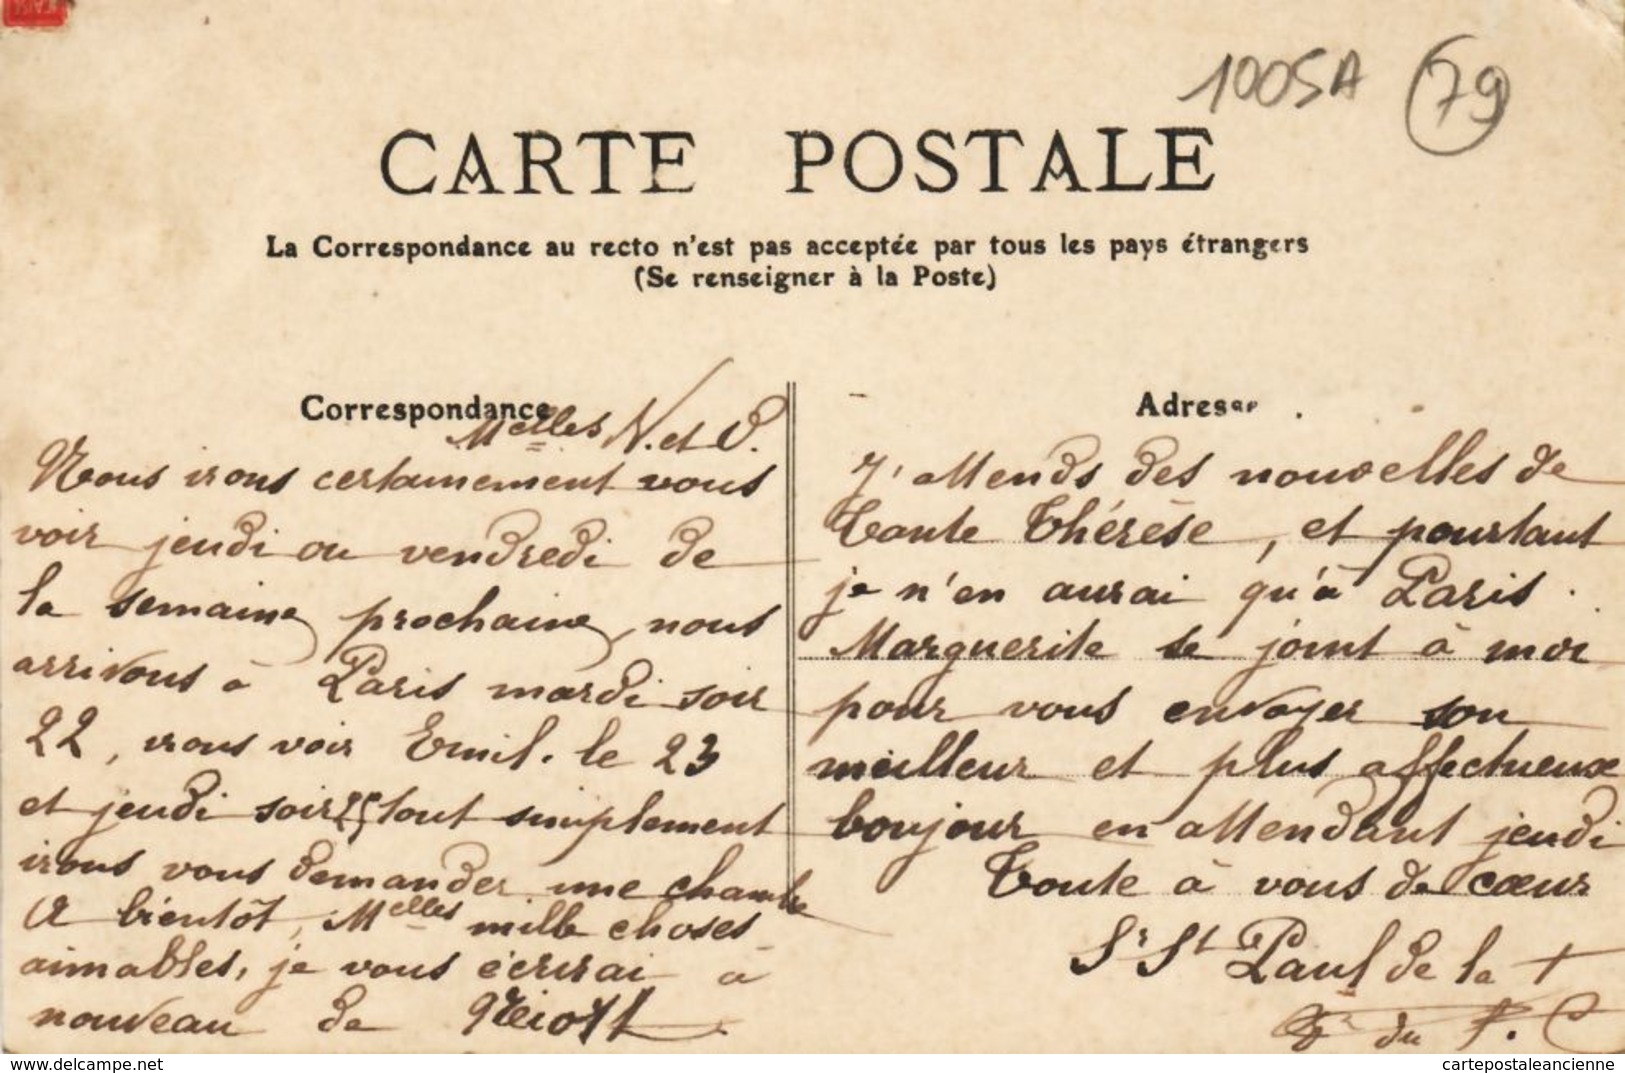 1005A 79
CARTE POSTALE
La Correspondance au recto n'est pas acceptée par tous les pays étrangers
(Se renseigner à la Poste)
Correspondance
Melles N. et
Nous irons certainement vous
voir jeudi ou vendredi de
la semaine prochaine, nous
arrivons à Paris mardi soir
22, irons voir Emil. le 23
et jeudi soir tout simplement
irons vous demander une chambre
A bientôt, Melles mille choses
aimables, je vous écrirai à
nouveau de Niort
Adresse
J'attends des nouvelles de
Tante Thérèse, et pourtant
je n'en aurai qu'à Paris.
Marguerite se joint à moi
pour vous envoyer son
meilleur et plus affectueux
bonjour en attendant jeudi
Toute à vous de cœur
Sr St Paul de la +
du P. C
www.delcampe.net
cartepostaleancienne